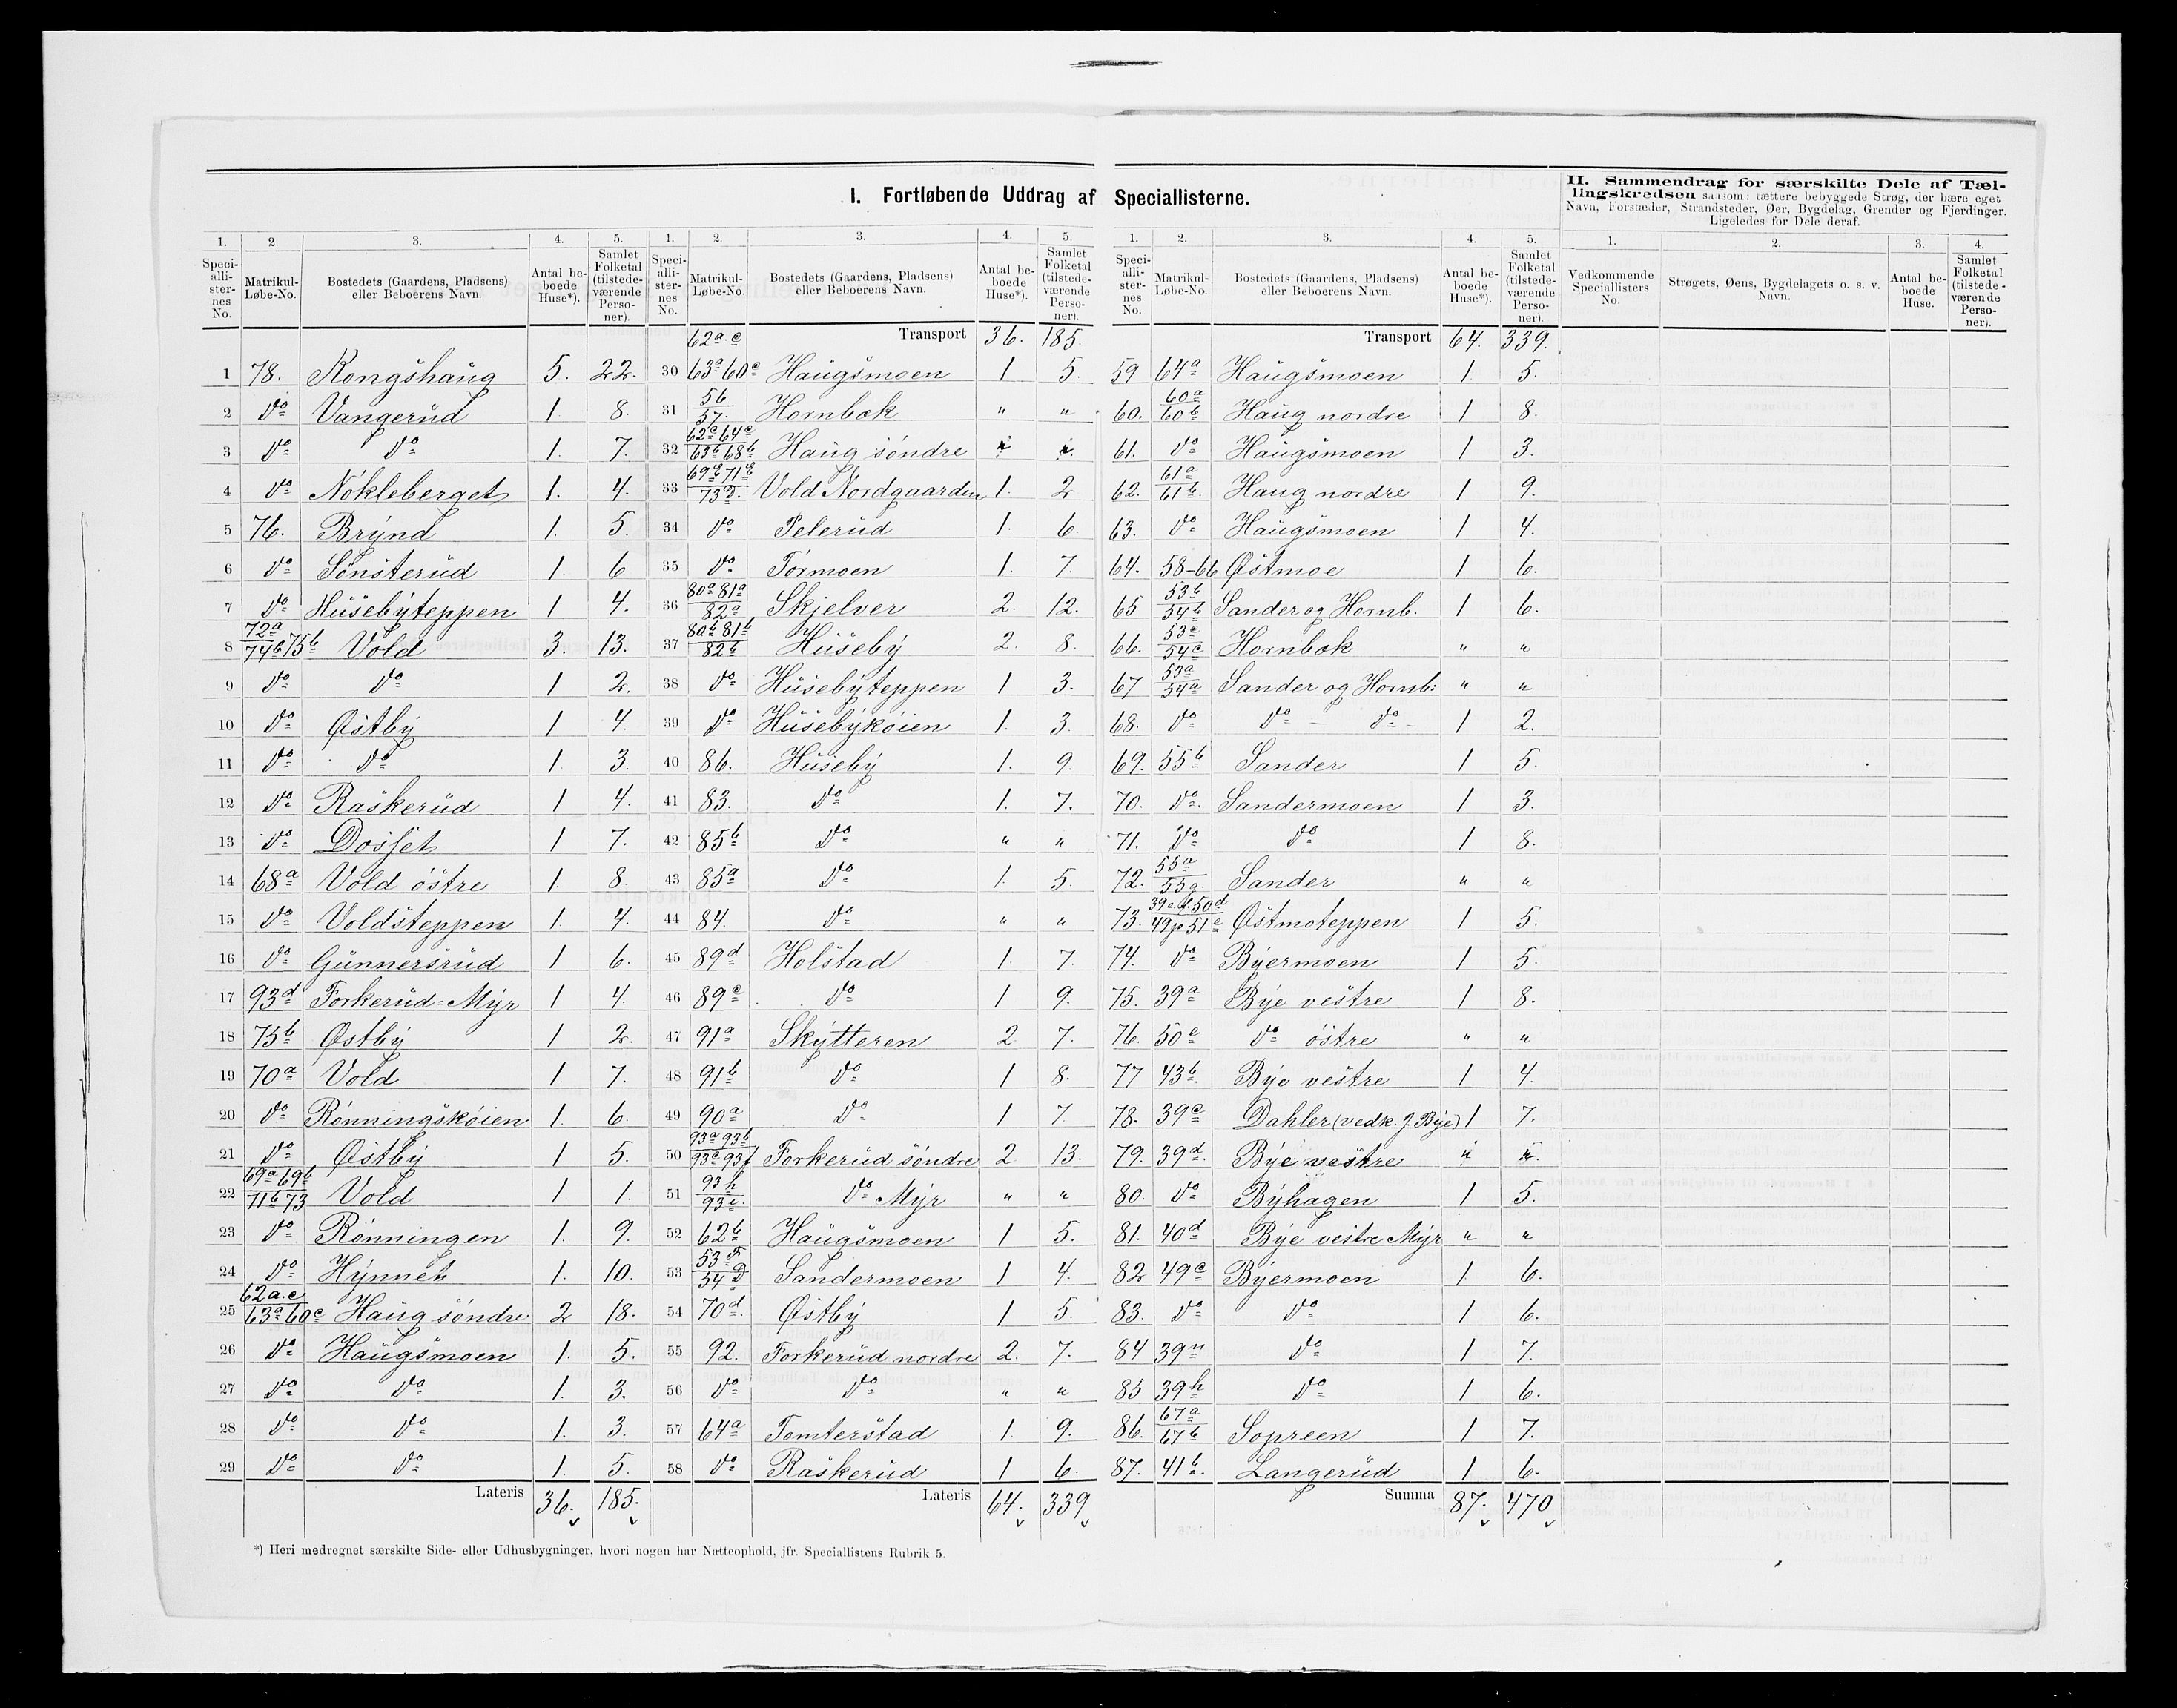 I. Fortløbende Uddrag af Speciallisterne.
II. Sammendrag for særskilte Dele af Tæl-
lingskredsen saasom: tættere bebyggede Strøg, der bære eget
Navn, Forstæder, Strandsteder, Øer, Bygdelag, Grender og Fjerdinger.
Ligeledes for Dele deraf.
1. 2. 3. 4. 5.
Speci-alli-ster-nes No. Matrikul-Løbe-No. Bostedets (Gaardens, Pladsens) eller Beboerens Navn. Antal be-boede Huse*). Samlet Folketal (tilstede-værende Perso-ner).
1 78. Kongshaug 5. 22.
2 do Vangerud 1. 8.
3 do do 1. 7.
4 do Nökleberget 1. 4.
5 76. Brynd 1. 5.
6 do Sönsterud 1. 6
7 do Husebyteppen 1 4.
8 72a 74b 75b Vold 3. 13.
9 do do 1 2.
10 do Østby 1 4.
11 do do 1. 3.
12 do Raskerud 1 4.
13 do Dosset 1 7.
14 68a Vold östre 1. 8.
15 do Voldsteppen 1. 4.
16 do Gunnersrud 1 6.
17 93d Forkerud=Myr 1 4.
18 75b Østby 1 2.
19 70a Vold 1. 7.
20 do Rönningsköien 1. 6.
21 do Østby 1 5.
22 69a 69b 71b 73 Vold 1 1.
23 do Rönningen 1. 9.
24 do Hynnet 1. 10.
25 62a.c 63a 60c Haug söndre 2 18.
26 do Haugsmoen 1. 5.
27 do do 1. 3.
28 do do 1. 3.
29 do do 1. 5.
Lateris 36. 185.
1. 2. 3. 4. 5.
Speci-alli-ster-nes No. Matrikul-Løbe-No. Bostedets (Gaardens, Pladsens) eller Beboerens Navn. Antal be-boede Huse*). Samlet Folketal (tilstede-værende Perso-ner).
Transport 36. 185.
30 62a.c 63a 60c Haugsmoen 1 5.
31 56 57. Hornbæk " "
32 62c 64c 63b 68b Haug söndre " "
33 Vold Nordgaarden 1. 2
34 do Pelerud 1. 6.
35 do Törmoen 1. 7.
36 80a 81a 82a Skjelver 2. 12.
37 80b 81b 82b Huseby 2. 8.
38 do Husebyteppen 1 3.
39 do Husebyköien 1. 3.
40 86. Huseby 1. 9.
41 83. do 1. 7.
42 85b do " "
43 85a do 1. 5.
44 84. do " "
45 89d Holstad 1. 7.
46 89c do 1 9.
47 91a Skytteren 2 7.
48 91b do 1 8.
49 90a do 1 7
50 93a 93b 93c 93f Forkerud söndre 2 13.
51 93h 93i. do Myr " "
52 62b Haugsmoen 1 5.
53 53F 54D Sandermoen 1 4.
54 70d. Østby 1 5.
55 92. Forkerud nordre 2. 7.
56 do do " "
57 64a Tomterstad 1. 9.
58 do Raskerud 1 6.
Lateris 64. 339
1. 2. 3. 4. 5.
Speci-alli-ster-nes No. Matrikul-Løbe-No. Bostedets (Gaardens, Pladsens) eller Beboerens Navn. Antal be-boede Huse*). Samlet Folketal (tilstede-værende Perso-ner).
Transport 64. 339.
59 64a Haugsmoen 1. 5.
60. 60a 60b Haug nordre 1 8.
61. do Haugsmoen 1 3.
62. 61a 61b. Haug nordre 1 9.
63. do Haugsmoen 1 4.
64. 58-66 Østmoe 1 6.
65 53b 54b Sander og Hornb. 1 6.
66. 53c 54c Hornbæk " "
67 53a 54a Sander og Hornb: " "
68. do do - do - 1 2.
69. 55b Sander 1 5.
70. do Sandermoen 1 3.
71. do do 1 8.
72. 55a 55g. Sander " "
73. Østmoteppen 1 5.
74. do Byermoen 1 5.
75. 39a Bye vestre 1 8.
76. 50e do östre " "
77 43b. Bye vestre 1 4.
78. 39e Dahler (vedk. J. Bye) 1 7.
79. 39d. Bye vestre " "
80. do Byhagen 1 5.
81. 40d Bye vestre Myr " "
82 49c Byermoen 1 6.
83. do do 1 6.
84 39n do 1 7.
85 39h do 1 6.
86. 67a 67b Sopreen 1 7.
87. 41b. Langerud 1 6.
Summa 87. 470
1. 2. 3. 4.
Vedkommende Speciallisters No. Strøgets, Øens, Bygdelagets o. s. v. Navn. Antal be-boede Huse. Samlet Folketal (tilstede-værende Perso-ner).
*) Heri medregnet særskilte Side- eller Udhusbygninger, hvori nogen har Natteophold, jfr. Speciallistens Rubrik 5.